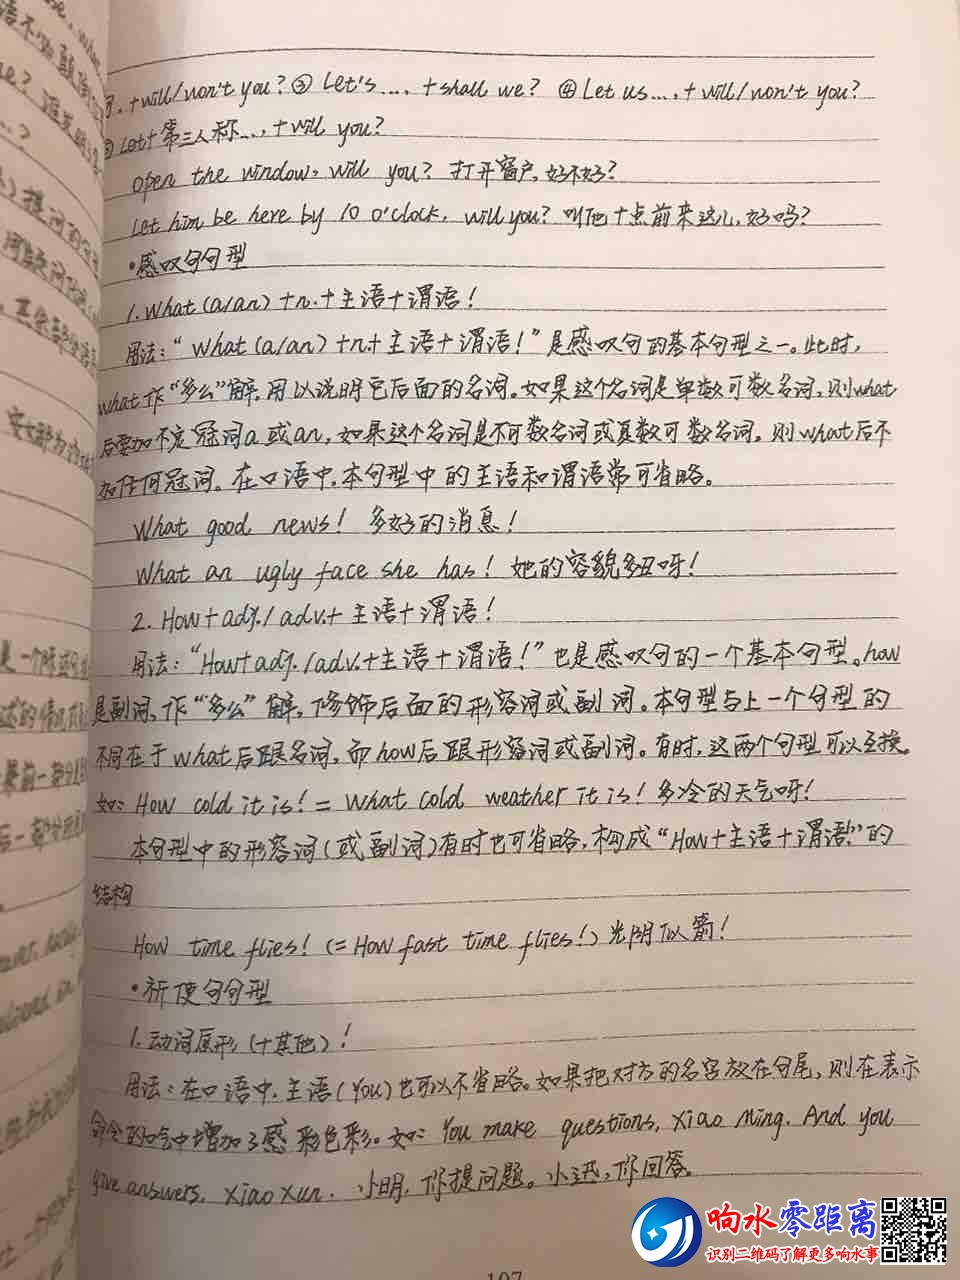 +will/won't you? ③ Let's..., +shall we? ④ Let us..., +will/won't you?
Let+第三人称..., +will you?
Open the window, will you? 打开窗户, 好不好?
Let him be here by 10 o'clock, will you? 叫他十点前来这儿, 好吗?
•感叹句句型
1. What (a/an) +n.+主语+谓语!
用法:“What (a/an) +n+主语+谓语!”是感叹句的基本句型之一。此时,
what作“多么”解,用以说明它后面的名词。如果这个名词是单数可数名词,则what
后要加不定冠词a或an,如果这个名词是不可数名词或复数可数名词,则what后不
加任何冠词。在口语中,本句型中的主语和谓语常可省略。
What good news! 多好的消息!
What an ugly face she has! 她的容貌多丑呀!
2. How+adj./adv.+主语+谓语!
用法:“How+adj./adv.+主语+谓语!”也是感叹句的一个基本句型。how
是副词,作“多么”解,修饰后面的形容词或副词。本句型与上一个句型的
不同在于what后跟名词,而how后跟形容词或副词。有时,这两个句型可以互换。
如: How cold it is! = What cold weather it is! 多冷的天气呀!
本句型中的形容词(或副词)有时也可省略,构成“How+主语+谓语!”的
结构
How time flies! (= How fast time flies!) 光阴似箭!
•祈使句句型
1. 动词原形 (+其他)!
用法:在口语中,主语(You)也可以不省略。如果把对方的名字放在句尾,则在表示
命令的口气中增加了感彩色彩。如: You make questions, Xiao Ming. And you
give answers, Xiao Xun. 小明,你提问题。小迅,你回答。
107
响水零距离
识别二维码了解更多响水事